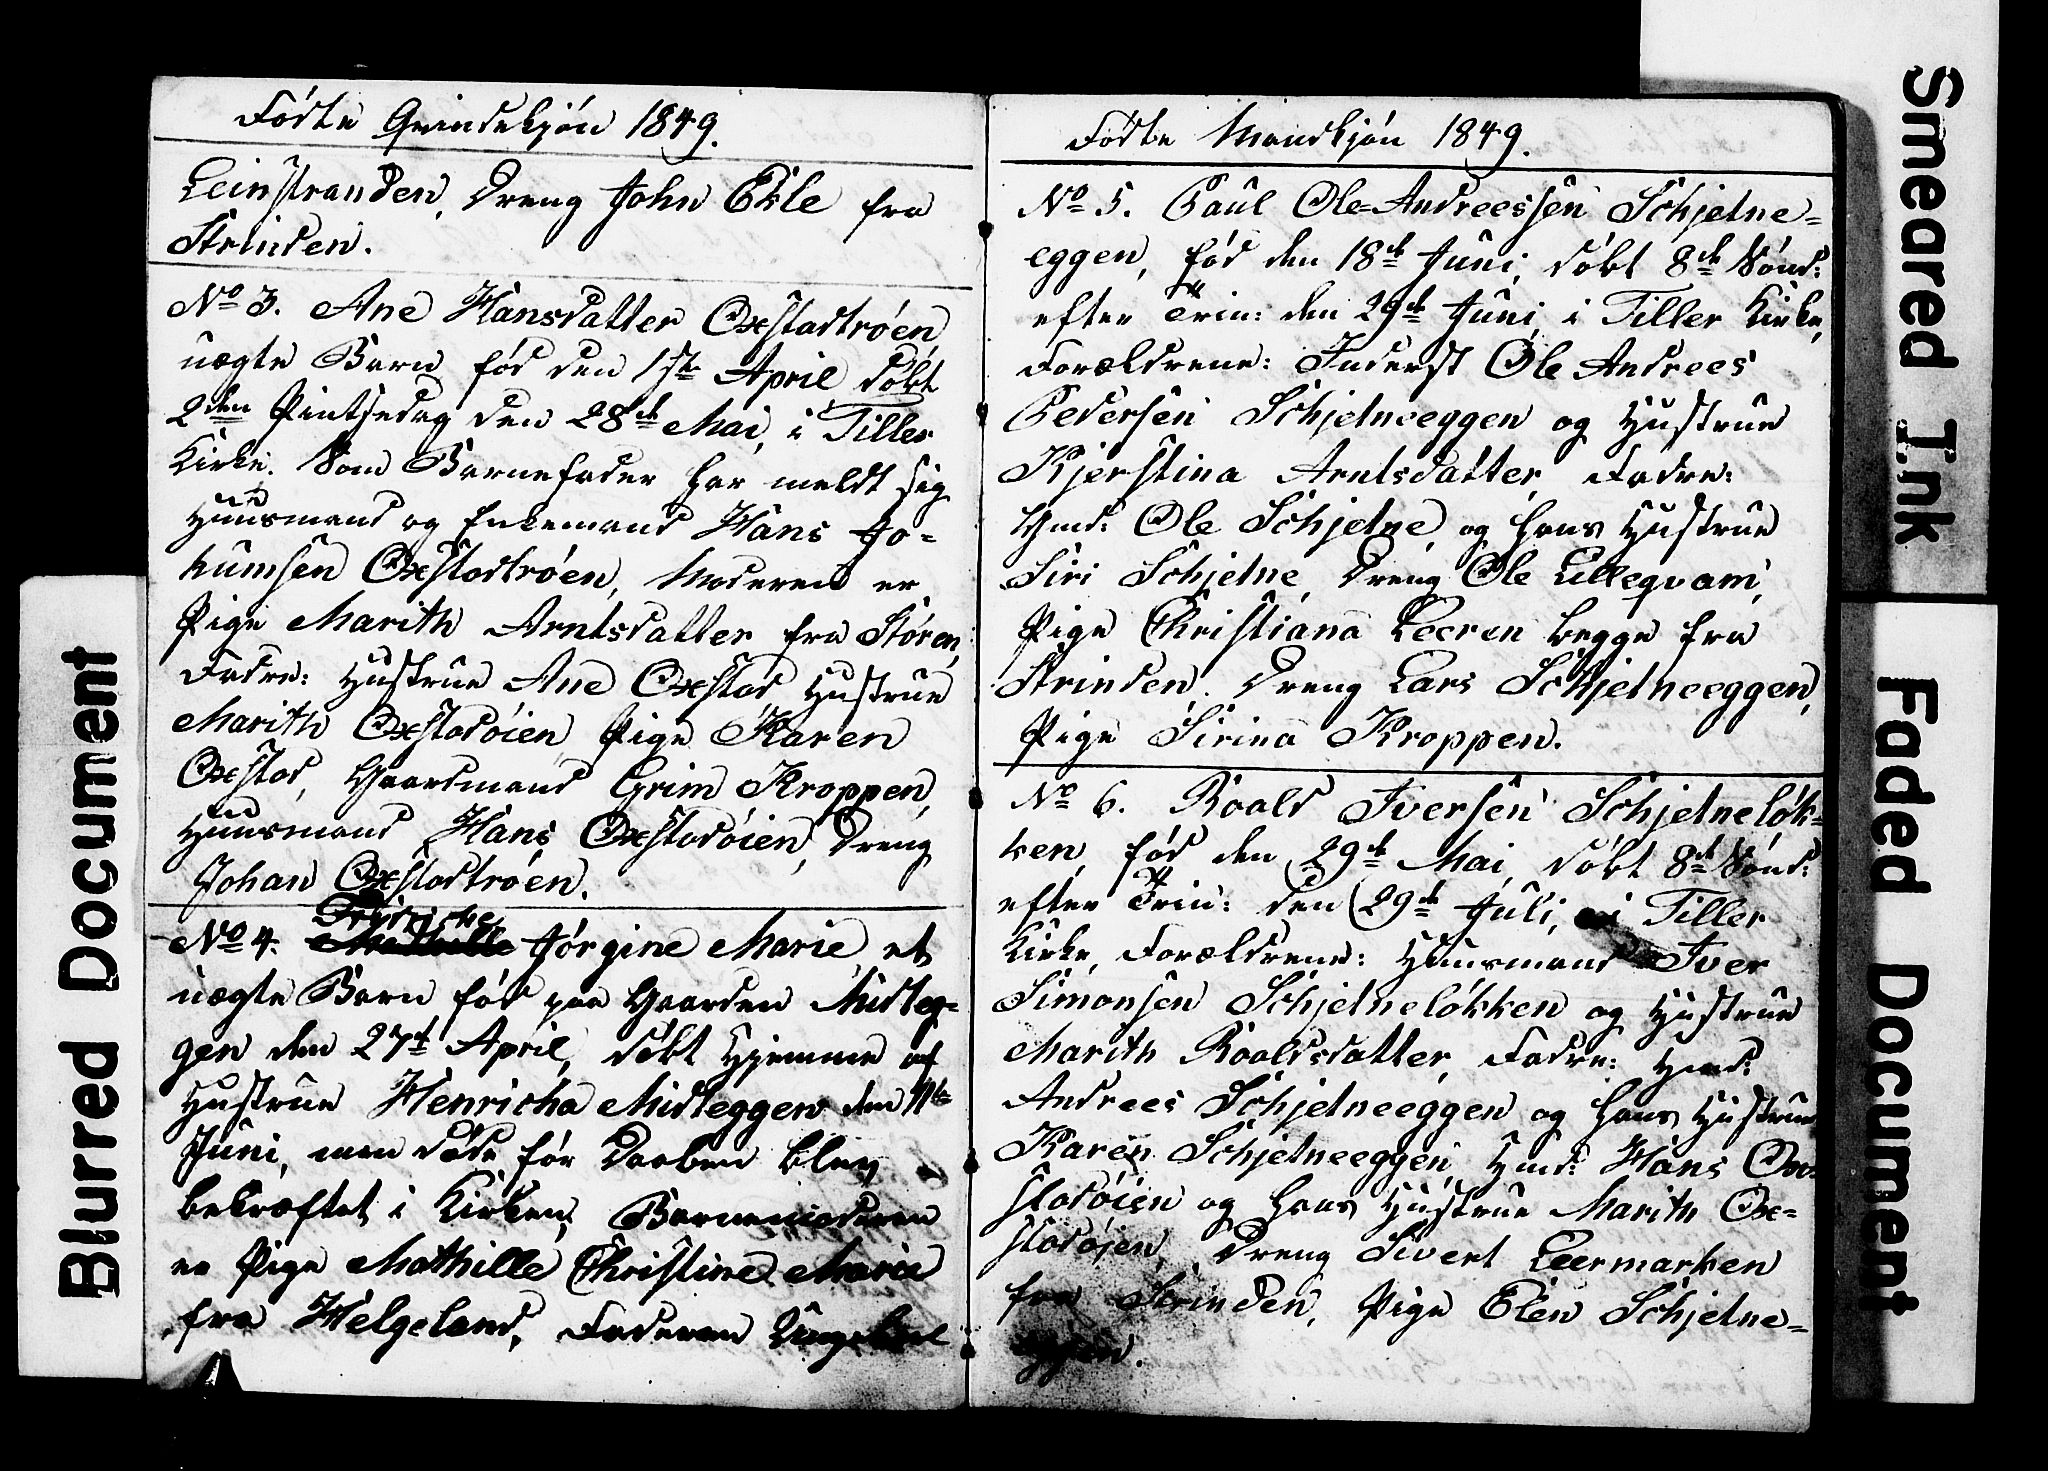 Fødte Qvindekjøn 1849.
Leinstranden, Dreng John Eklefra
Strinden.
No 3. Ane Hansdatter Oxstadtrøen,
uægte Barn, fød den 1ste April, døbt
2den Pintsedag den 28de Mai, i Tiller
Kirke. Som Barnefader har meldt sig
Huusmand og Enkemand Hans Jo-
kumsen Oxstadtrøen, Moderen er
Pige Marith Arntsdatter fra Støren,
Fadre: Hustrue Ane Oxstad, Hustrue
Marith Oxstadøien, Pige Karen
Oxstad, Gaardmand Grim Kroppen,
Huusmand Hans Oxstadøien, Dreng
Johan Oxstadtrøen.
No 4. Jørgine Marie, et
uægte Barn fød paa Gaarden Midteg-
gen den 27de April, døbt hjemme af
Hustrue Henricha Midteggen den
Juni, men døde før Daaben blev
bekræftet i Kirken, Barnemoderen
er Pige Mathille Christine Marie
fra Helgeland, Faderen Ungkarl
Fødte Mandkjøn 1849.
No 5. Paul Ole-Andreessen Schjetne-
eggen, fød den 18de Juni, døbt 8de Sønd:
efter Trin: den 29de Juni, i Tiller Kirke,
Forældrene: Inderst Ole Andrees
Pedersen Schjetneeggen og Hustrue
Kjerstina Arntsdatter, Fadre:
Gmd: Ole Schjetne, og hans Hustrue
Siri Schjetne, Dreng Ole Lillegvam,
Pige Christiana Leeren begge fra
Strinden. Dreng Lars Schjetneeggen,
Pige Sirina Kroppen.
No 6. Roald Iversen Schjetneløk-
ken, fød den 29de Mai, døbt 8de Sønd:
efter Trin: den 29de Juli, i Tiller
Kirke, Forældrene: Huusmand Iver
Simonsen Schjetneløkken og Hustrue
Marith Roaldsdatter, Fadre: Hmd:
Andrees Schjetneeggen og hans Hustrue
Karen Schjetneeggen, Hmd: Hans Ox-
stadøien og hans Hustrue Marith Ox-
stadøjen, Dreng Sivert Leermarken
fra Strinden, Pige Elen Schjetne-
eggen.
Blurred Document
Smeared Ink
Faded Document